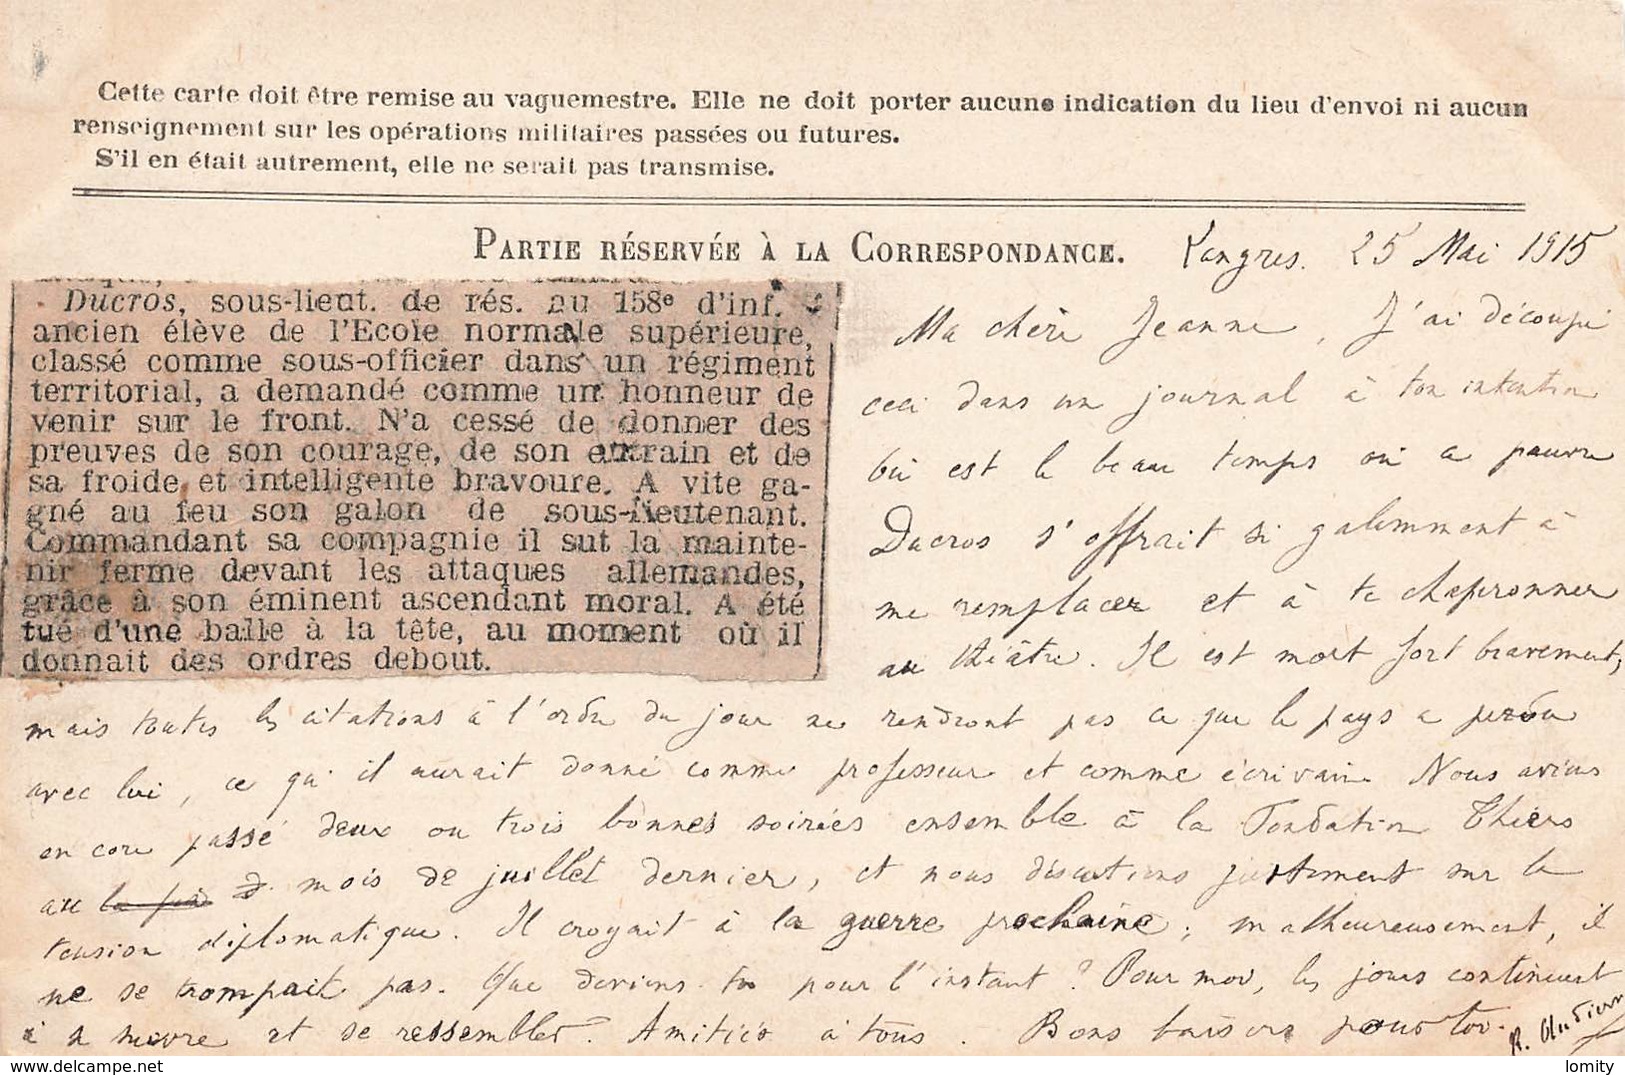 Cette carte doit être remise au vaguemestre. Elle ne doit porter aucune indication du lieu d'envoi ni aucun
renseignement sur les opérations militaires passées ou futures.
S'il en était autrement, elle ne serait pas transmise.
PARTIE RÉSERVÉE À LA CORRESPONDANCE.
Langres. 25 Mai 1915
Ducros, sous-lieut. de rés. au 158e d'inf.
ancien élève de l'Ecole normale supérieure,
classé comme sous-officier dans un régiment
territorial, a demandé comme un honneur de
venir sur le front. N'a cessé de donner des
preuves de son courage, de son entrain et de
sa froide et intelligente bravoure. A vite ga-
gné au feu son galon de sous-lieutenant.
Commandant sa compagnie il sut la mainte-
nir ferme devant les attaques allemandes,
grâce à son éminent ascendant moral. A été
tué d'une balle à la tête, au moment où il
donnait des ordres debout.
Ma chère Jeanne, J'ai découpé
ceci dans un journal à ton intention
où est le beau temps où ce pauvre
Ducros s'offrait si galamment à
me remplacer et à te chaperonner
au théâtre. Il est mort fort bravement,
mais toutes les citations à l'ordre du jour ne rendront pas ce que le pays a perdu
avec lui, ce qu'il aurait donné comme professeur et comme écrivain. Nous avions
encore passé deux ou trois bonnes soirées ensemble à la Fondation Thiers
au mois de juillet dernier, et nous discutions justement sur la
tension diplomatique. Il croyait à la guerre prochaine ; malheureusement, il
ne se trompait pas. Que deviens-tu pour l'instant ? Pour moi, les jours continuent
à se suivre et se ressembler. Amitiés à tous. Bons baisers pour toi.
R.
lomity
delcampe.net